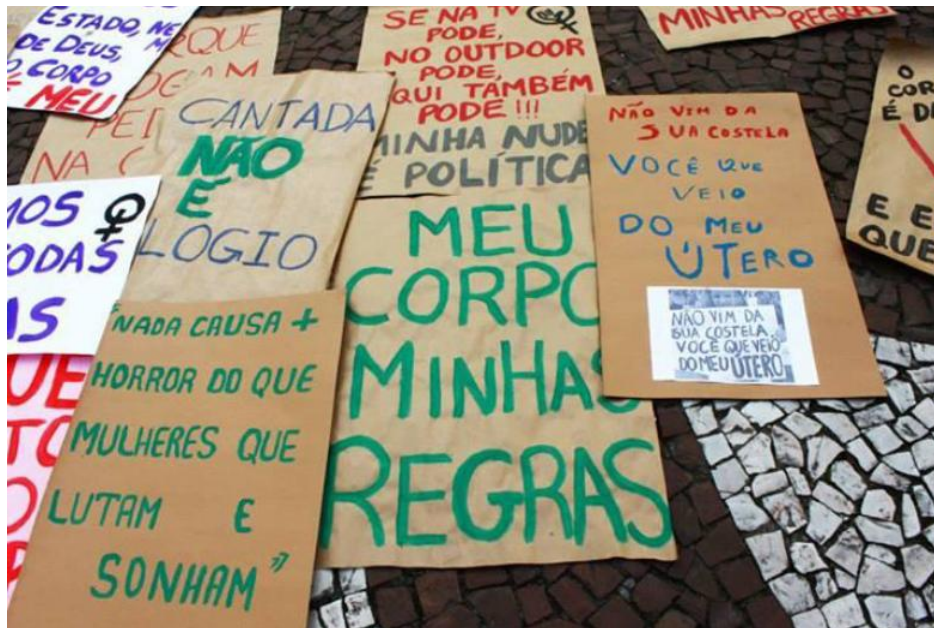 ESTADO, NE
DE DEUS,
CORPO
MEU
SE NA TV
PODE,
NO OUTDOOR
PODE,
QUI TAMBÉM
PODE!!!
MINHA NUDE
É POLÍTICA
MINHAS
REGRAS
O
COR
É D
E E
QUE
RQUE
OGAM
PED
NA C
CANTADA
NÃO
É
LOGIO
NÃO VIM DA
SUA COSTELA
VOCÊ QUE
VEIO
DO MEU
ÚTERO
NÃO VIM DA
SUA COSTELA,
VOCÊ QUE VEIO
DO MEU ÚTERO
MOS
ODAS
AS
MEU
CORPO
MINHAS
REGRAS
"NADA CAUSA +
HORROR DO QUE
MULHERES QUE
LUTAM E
SONHAM"
UE
TO
O